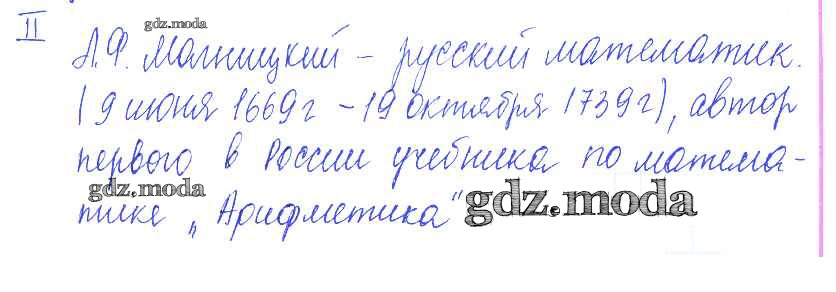 II
gdz.moda
Л.Ф. Магницкий – русский математик.
(9 июня 1669г – 19 октября 1739г), автор
первого в России учебника по матема-
gdz.moda
тике „Арифметика“
gdz.moda